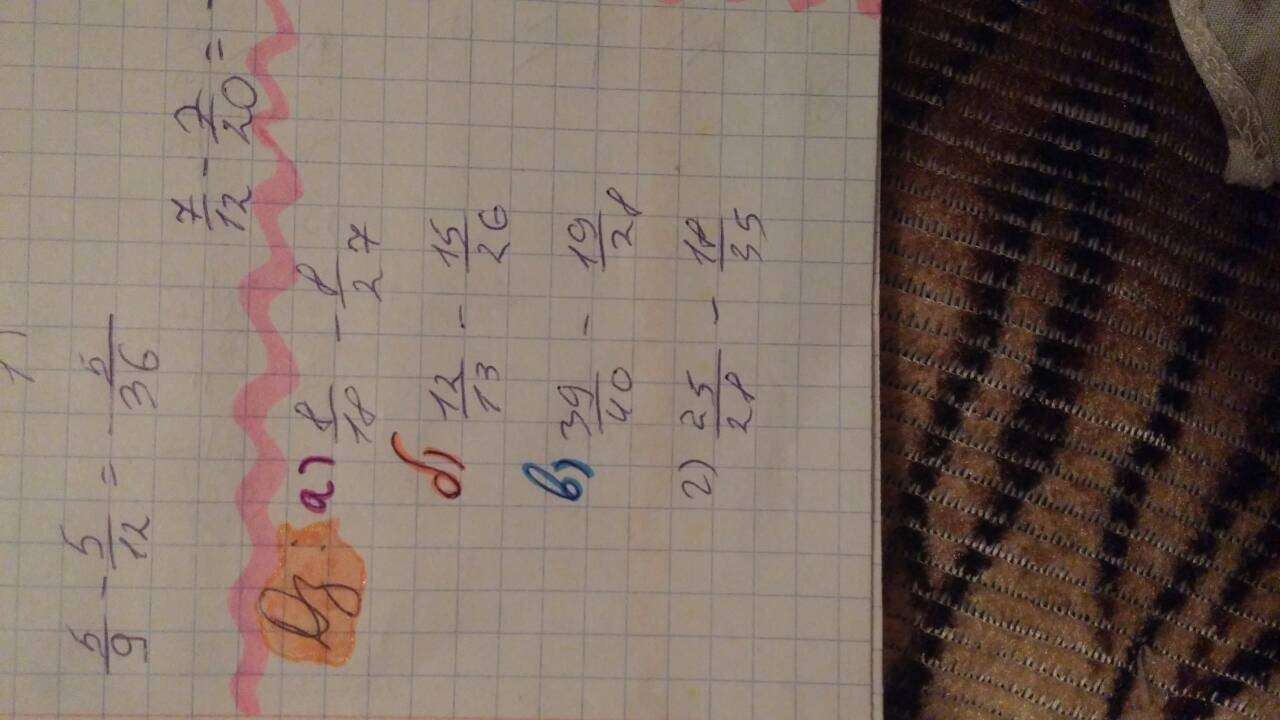 1)
5/9 - 5/12 = 5/36
7/12 - 7/20 =
Дз:
а) 8/18 - 8/27
б) 12/13 - 15/26
в) 39/40 - 19/28
г) 25/28 - 18/35